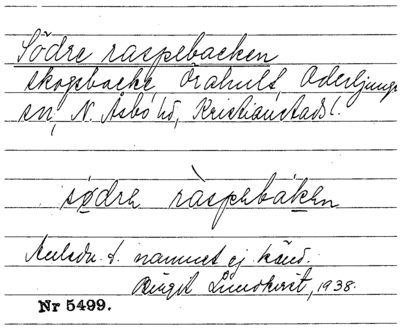 Södre raspebacken
skogsbacke, Örahult, Oderljunga
sn, N. Åsbo hd, Kristianstads l.
södre ràspebáken
Anledn. t. namnet ej känd.
Birgit Lindkvist, 1938.
Nr 5499.